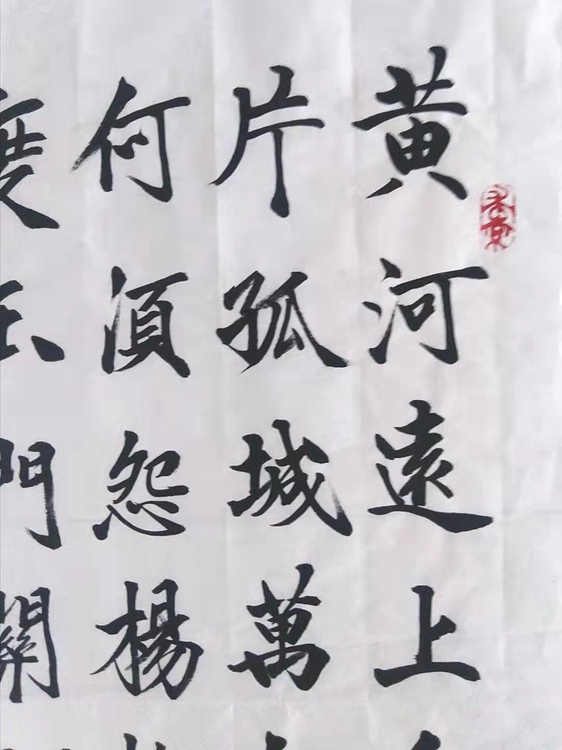 黄河遠上
片孤城萬
何湏怨楊
度玉門關